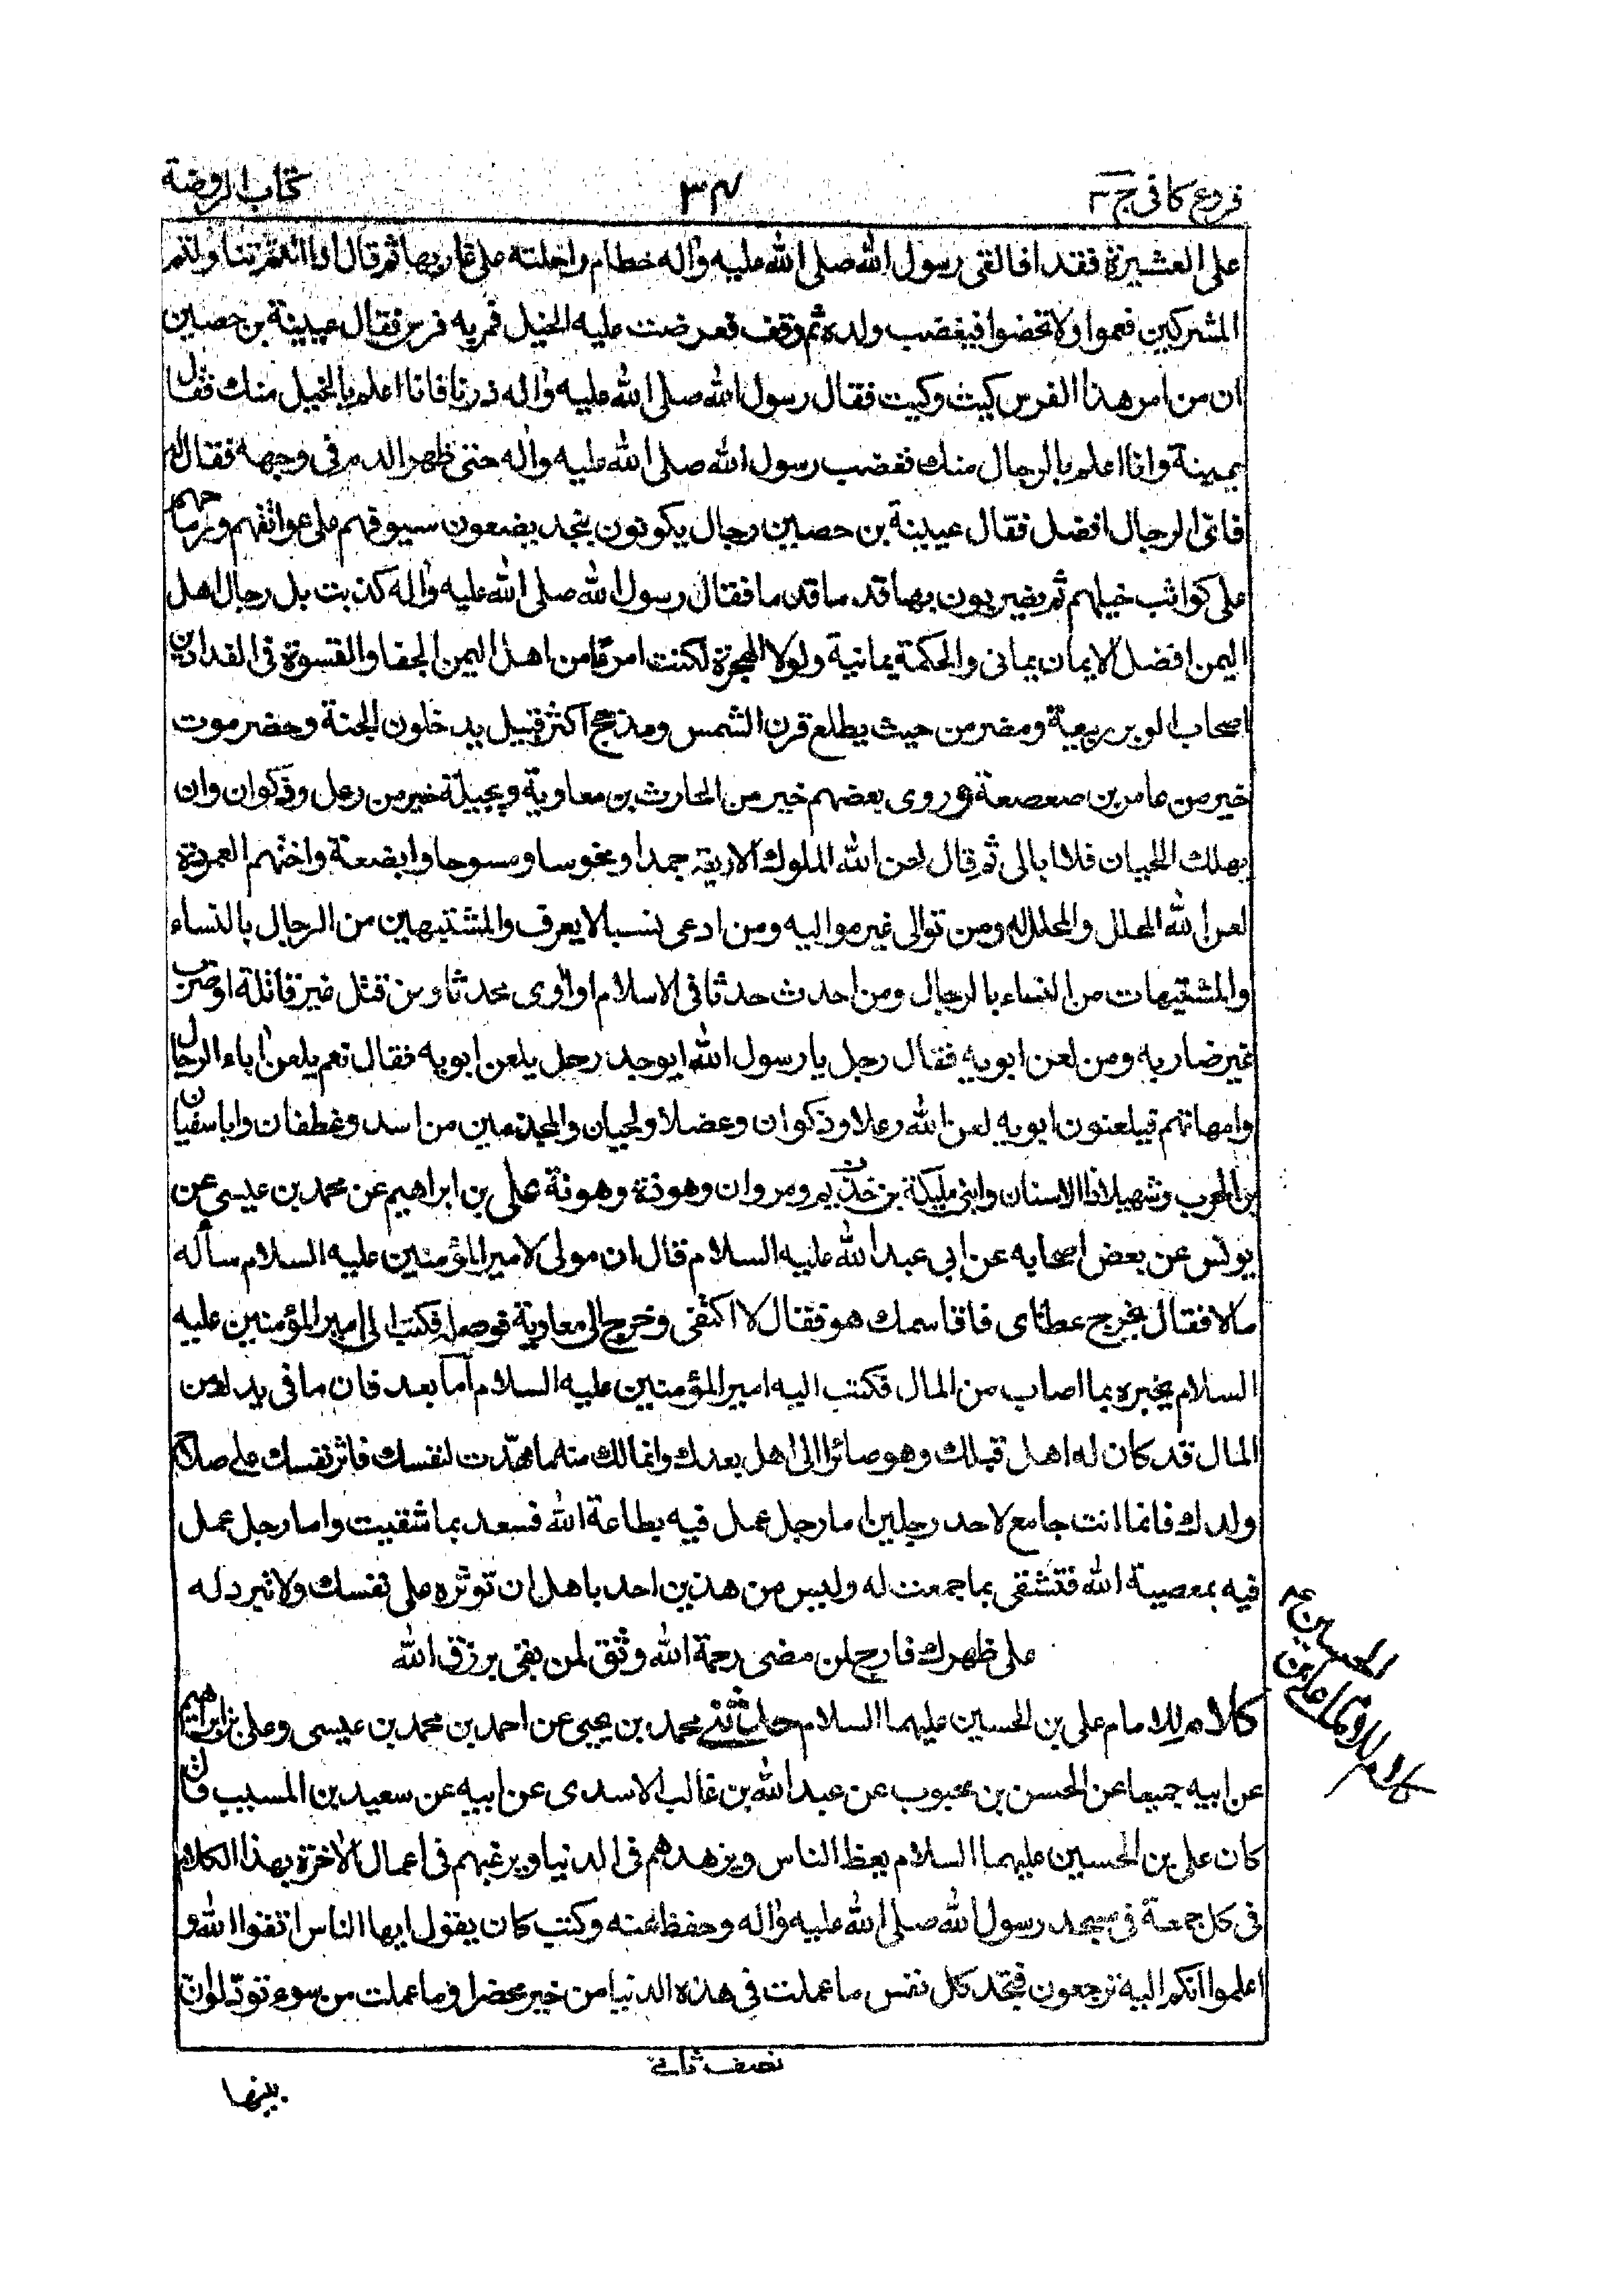 فروع كافى ج ٣
٣٤
كتاب الروضة
على العشيرة فقد افالقى رسول الله صلى الله عليه واله خطام راحلته على غاربها ثم قال اذا انتم تناولتم
المشركين فعموا ولا تخصوا فيغضب ولده ثم وقف فعرضت عليه الخيل فمر به فرس فقال عيينة بن حصين
ان من امر هذا الفرس كيت وكيت فقال رسول الله صلى الله عليه واله ذرنا فانا اعلم بالخيل منك فقال
عيينة وانا اعلم بالرجال منك فغضب رسول الله صلى الله عليه واله حتى ظهر الدم فى وجهه فقال له
فاى الرجال افضل فقال عيينة بن حصين رجال يكونون بنجد يضعون سيوفهم على عواتقهم ورماحهم
على كواثب خيلهم ثم يضربون بها قدما قدما فقال رسول الله صلى الله عليه واله كذبت بل رجال اهل
اليمن افضل الايمان يمانى والحكمة يمانية ولولا الهجرة لكنت امرءا من اهل اليمن الجفا والقسوة فى الفدادين
اصحاب الوبر ربيعة ومضر من حيث يطلع قرن الشمس ومذحج اكثر قبيل يدخلون الجنة وحضرموت
خير من عامر بن صعصعة وروى بعضهم خير من الحارث بن معاوية وبجيلة خير من رعل وذكوان وان
يهلك لحيان فلا ابالى ثم قال لعن الله الملوك الاربعة جمدا ومخوسا ومسوحا وابضعة واختهم العمردة
لعن الله المحلل والمحلل له ومن توالى غير مواليه ومن ادعى نسبا لا يعرف والمتشبهين من الرجال بالنساء
والمتشبهات من النساء بالرجال ومن احدث حدثا فى الاسلام او اوى محدثا ومن قتل غير قاتله او ضرب
غير ضاربه ومن لعن ابويه فقال رجل يا رسول الله ايوجد رجل يلعن ابويه فقال نعم يلعن اباء الرجال
وامهاتهم فيلعنون ابويه لعن الله رعلا وذكوان وعضلا ولحيان والمجذمين من اسد وغطفان وابا سفيان
بن الحرب وشهيلا ذا الاسنان وابنى مليكة بن خديم ومروان وهوذة وهونة على بن ابراهيم عن محمد بن عيسى عن
يونس عن بعض اصحابه عن ابى عبد الله عليه السلام قال ان مولى لامير المؤمنين عليه السلام سأله
مالا فقال يخرج عطائى فاقاسمك هو فقال لا اكتفى وخرج الى معاوية فوصله فكتب الى امير المؤمنين عليه
السلام يخبره بما اصاب من المال فكتب اليه امير المؤمنين عليه السلام اما بعد فان ما فى يدك من
المال قد كان له اهل قبلك وهو صائرا الى اهل بعدك وانما لك منه ما مهدت لنفسك فاثر نفسك على صلاح
ولدك فانما انت جامع لاحد رجلين اما رجل عمل فيه بطاعة الله فسعد بما شقيت واما رجل عمل
فيه بمعصية الله فتشقى بما جمعت له وليس من هذين احد باهل ان توثره على نفسك ولا تبرد له
على ظهرك فارج لمن مضى رحمة الله وثق لمن بقى برزق الله
كلام للامام على بن الحسين عليهما السلام حدثنى محمد بن يحيى عن احمد بن محمد بن عيسى وعلى بن ابراهيم
عن ابيه جميعا عن الحسن بن محبوب عن عبد الله بن غالب الاسدى عن ابيه عن سعيد بن المسيب قال
كان على بن الحسين عليهما السلام يعظ الناس ويزهدهم فى الدنيا ويرغبهم فى اعمال الاخرة بهذا الكلام
فى كل جمعة فى مسجد رسول الله صلى الله عليه واله وحفظ عنه وكتب كان يقول ايها الناس اتقوا الله و
اعلموا انكم اليه ترجعون فتجد كل نفس ما عملت فى هذه الدنيا من خير محضرا وما عملت من سوء تود لو ان
كلام للامام على بن
الحسين ع
نصف ثانى
بينها